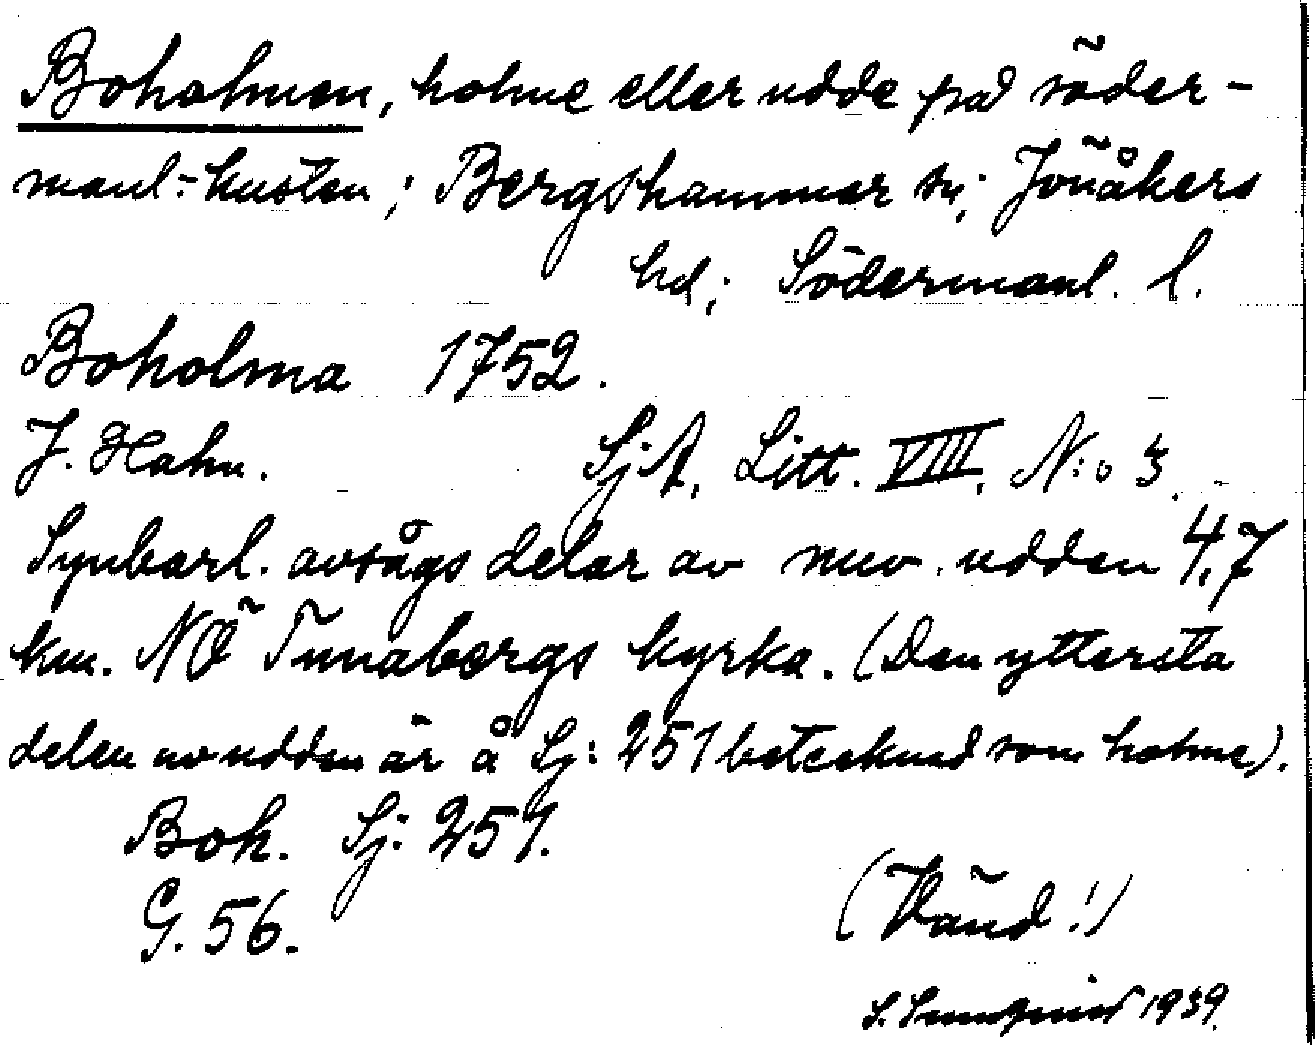 Boholmen, holme eller udde på söder-
manl:-kusten; Bergshammar sn; Jönåkers
hd; Södermanl. l.
Boholma 1752.
J. Hahn. SjA, Litt. VIII, N:o 3.
Synbarl. avsågs delar av nuv. udden 4,7
km. NÖ Tunabergs kyrka. (Den yttersta
delen av udden är å Sj: 251 betecknad som holme).
Boh. Sj: 251.
G. 56.
(Vänd!)
S. 1939.